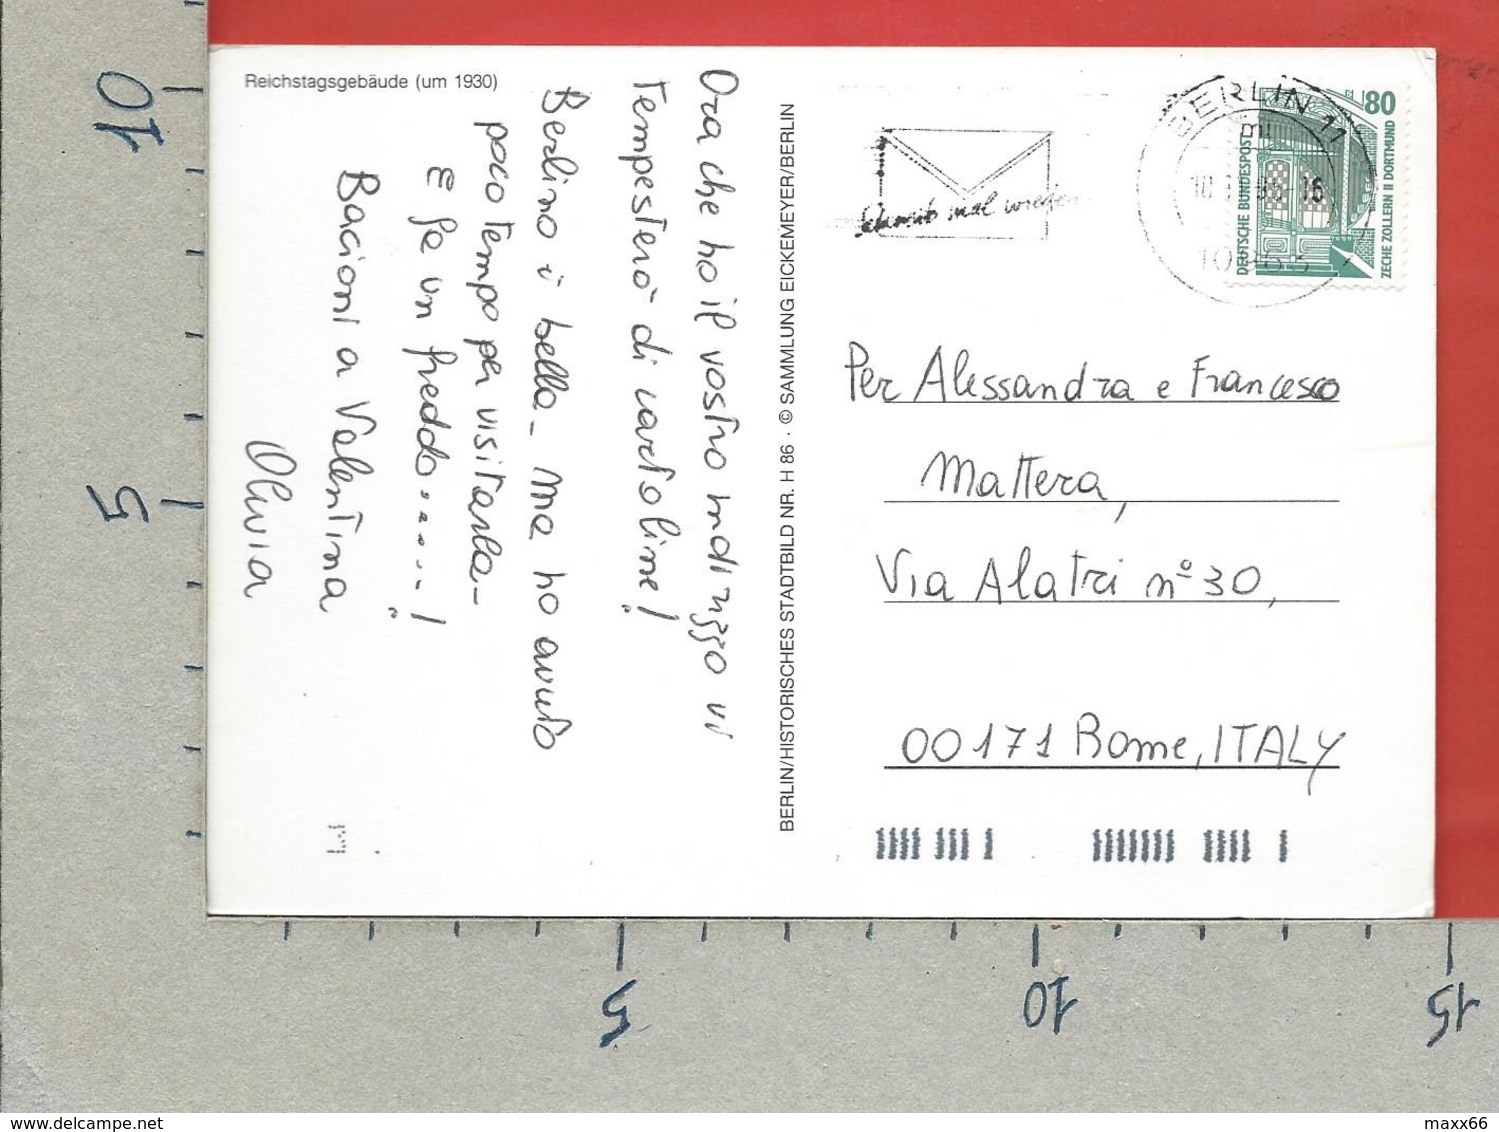 Reichstagsgebäude (um 1930)
Ora che ho il vostro indirizzo vi
Tempesterò di cartoline!
Berlino è bella - ma ho avuto
poco tempo per visitarla -
E fa un freddo......!
Bacioni a Valentina
Olivia
BERLIN/HISTORISCHES STADTBILD NR. H 86 · © SAMMLUNG EICKEMEYER/BERLIN
Schreib mal wieder
BERLIN 11
10963
80
DEUTSCHE BUNDESPOST
ZECHE ZOLLERN II DORTMUND
Per Alessandra e Francesco
Mattera,
Via Alatri nº 30,
00171 Rome, ITALY
10
5
5
10
15
www.delcampe.net
maxx66